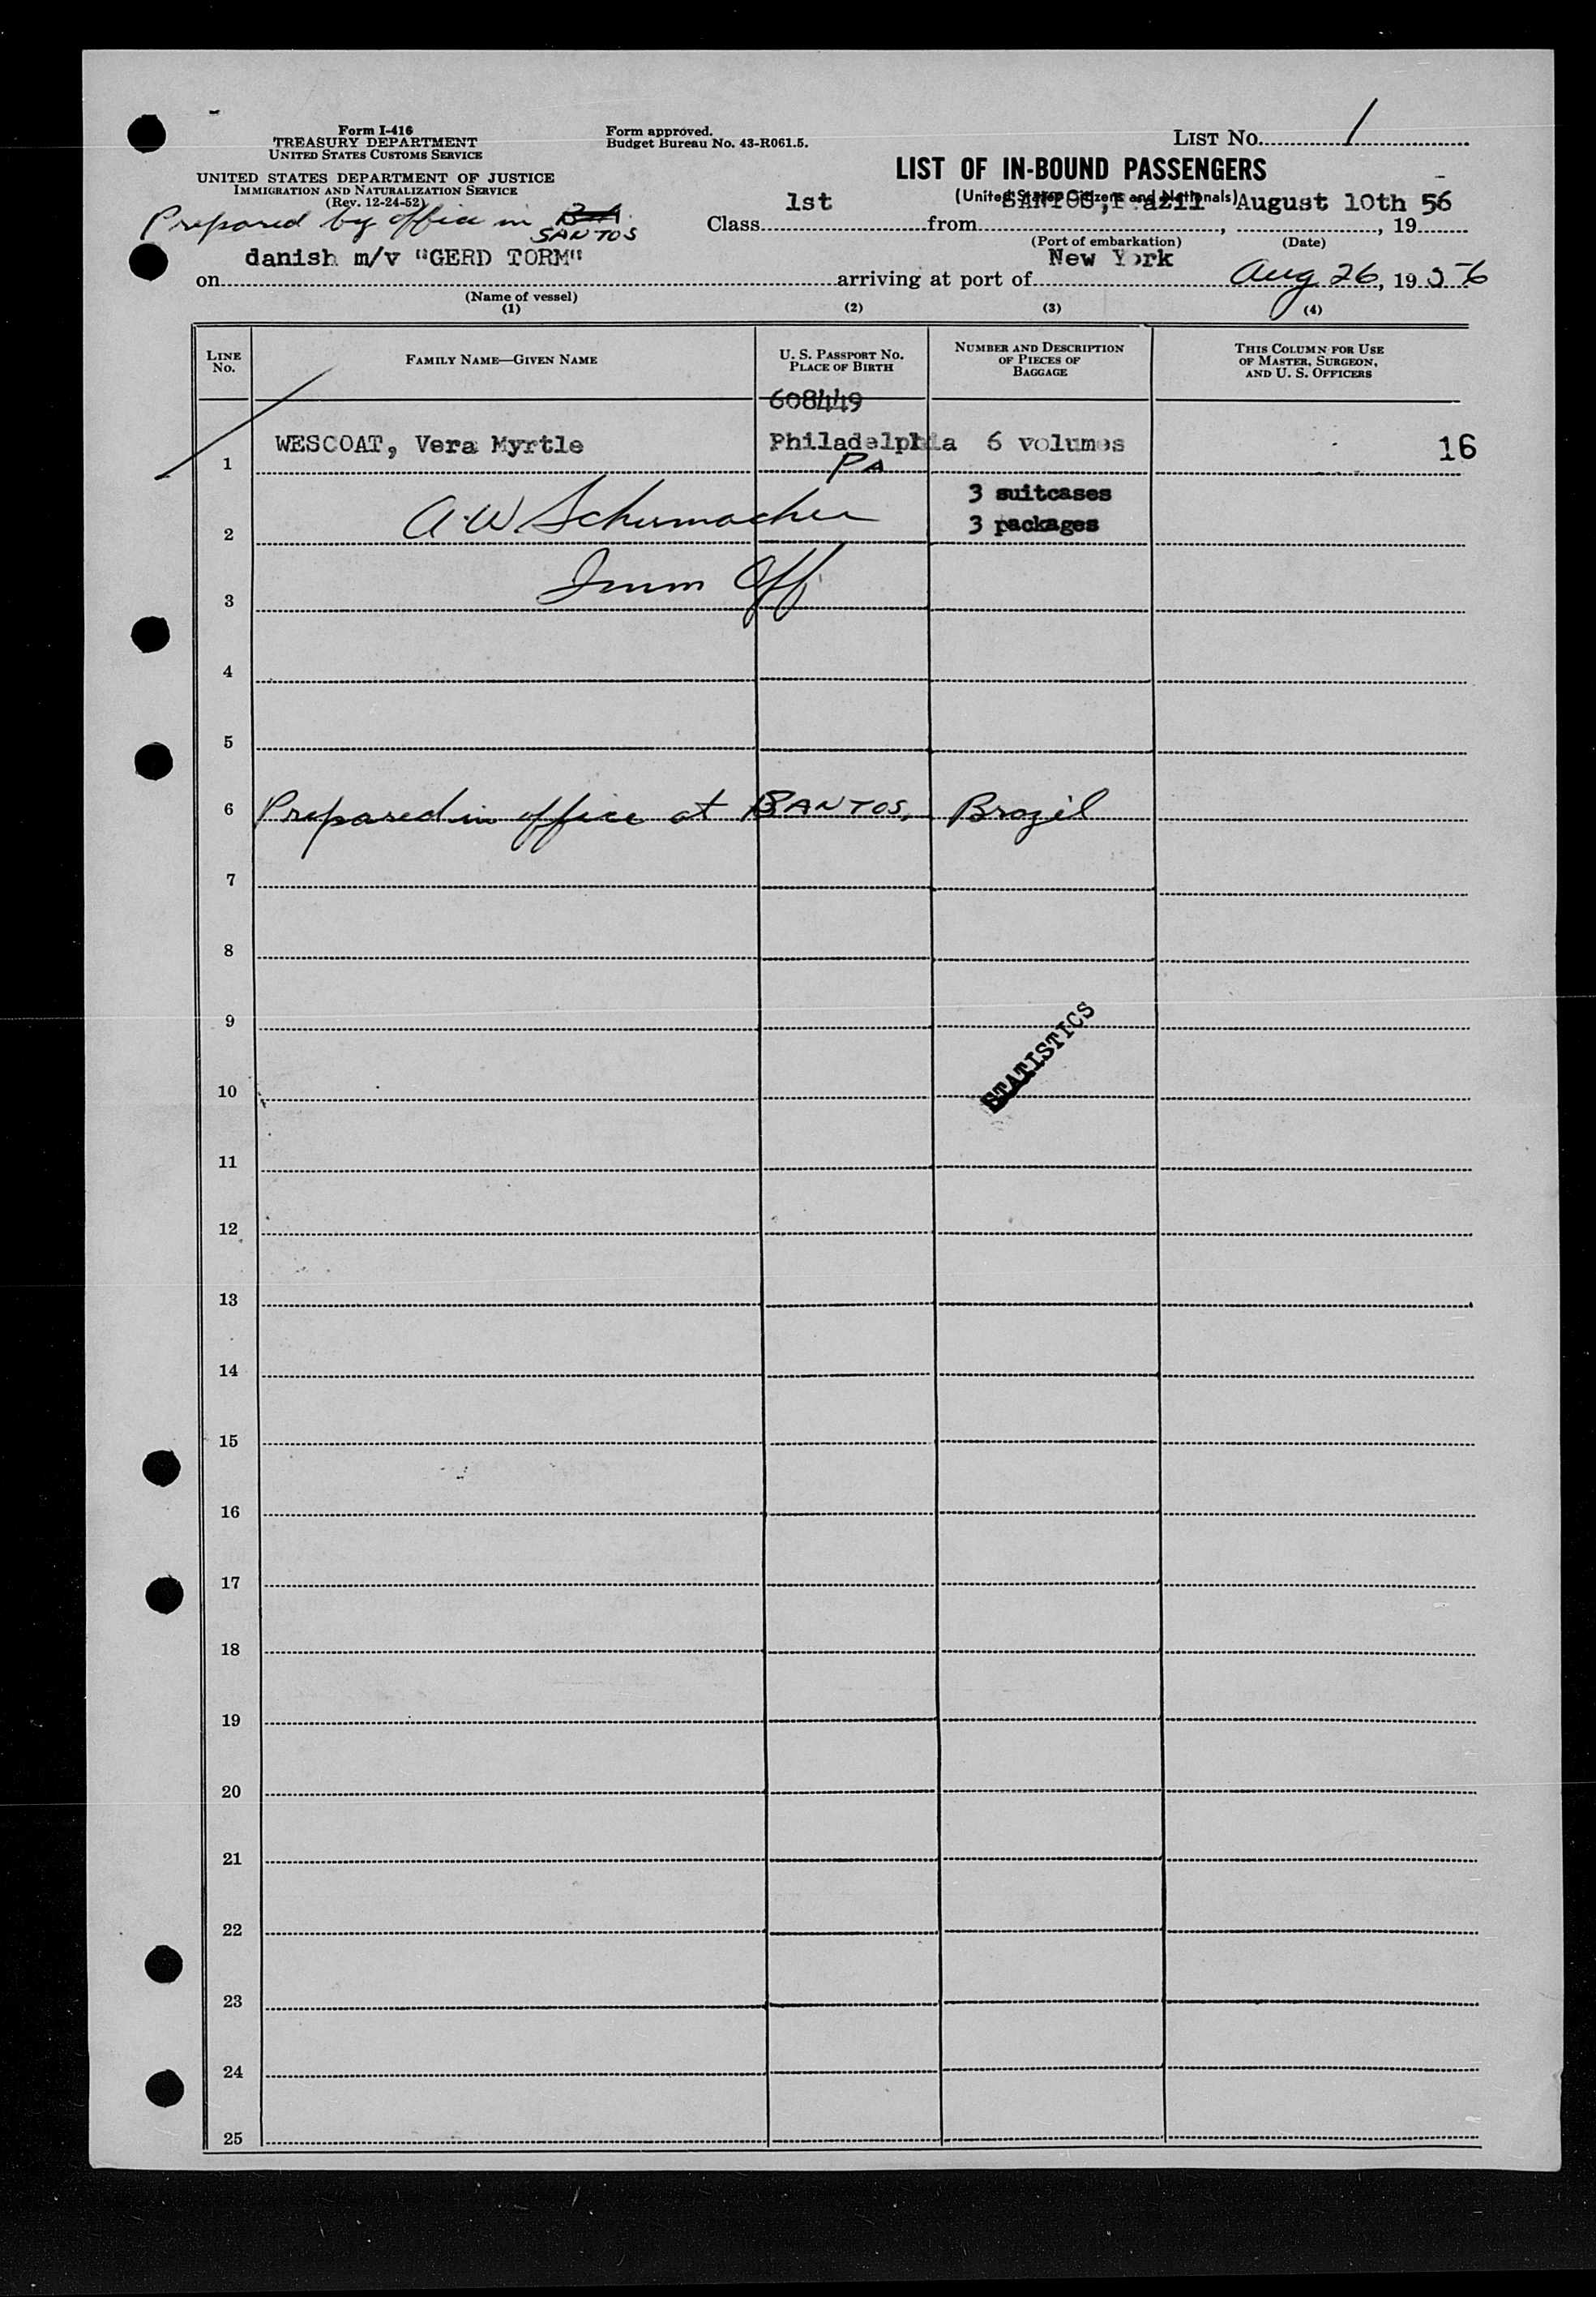 Form I-416
TREASURY DEPARTMENT
UNITED STATES CUSTOMS SERVICE
UNITED STATES DEPARTMENT OF JUSTICE
IMMIGRATION AND NATURALIZATION SERVICE
(Rev. 12-24-52)
Form approved.
Budget Bureau No. 43-R061.5.
LIST No. 1
LIST OF IN-BOUND PASSENGERS
(United States Citizens and Nationals)
Prepared by office in
SANTOS
Class 1st from SANTOS, Brazil, August 10th, 1956
(Port of embarkation) (Date)
on danish m/v "GERD TORM" arriving at port of New York Aug 26, 1956
(Name of vessel)
(1) (2) (3) (4)
LINE No.
FAMILY NAME—GIVEN NAME
U. S. PASSPORT NO.
PLACE OF BIRTH
NUMBER AND DESCRIPTION
OF PIECES OF
BAGGAGE
THIS COLUMN FOR USE
OF MASTER, SURGEON,
AND U. S. OFFICERS
608449
1 WESCOAT, Vera Myrtle Philadelphia 6 volumes 16
PA
3 suitcases
2 A.W Schumacher 3 packages
3 Imm Off
4
5
6 Prepared in office at SANTOS, Brazil
7
8
9
STATISTICS
10
11
12
13
14
15
16
17
18
19
20
21
22
23
24
25